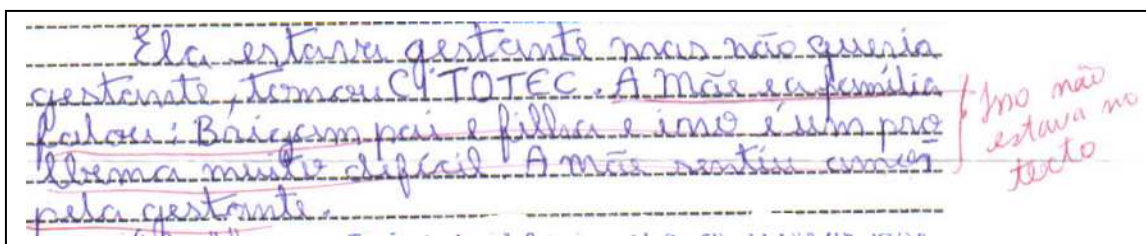 Ela estava gestante mas não queria
gestante, tomou CITOTEC. A Mãe e a família
falou: Brigam pai e filha e isso é um pro
blema muito difícil A mãe sentiu
pela gestante.
Isso não
estava no
texto